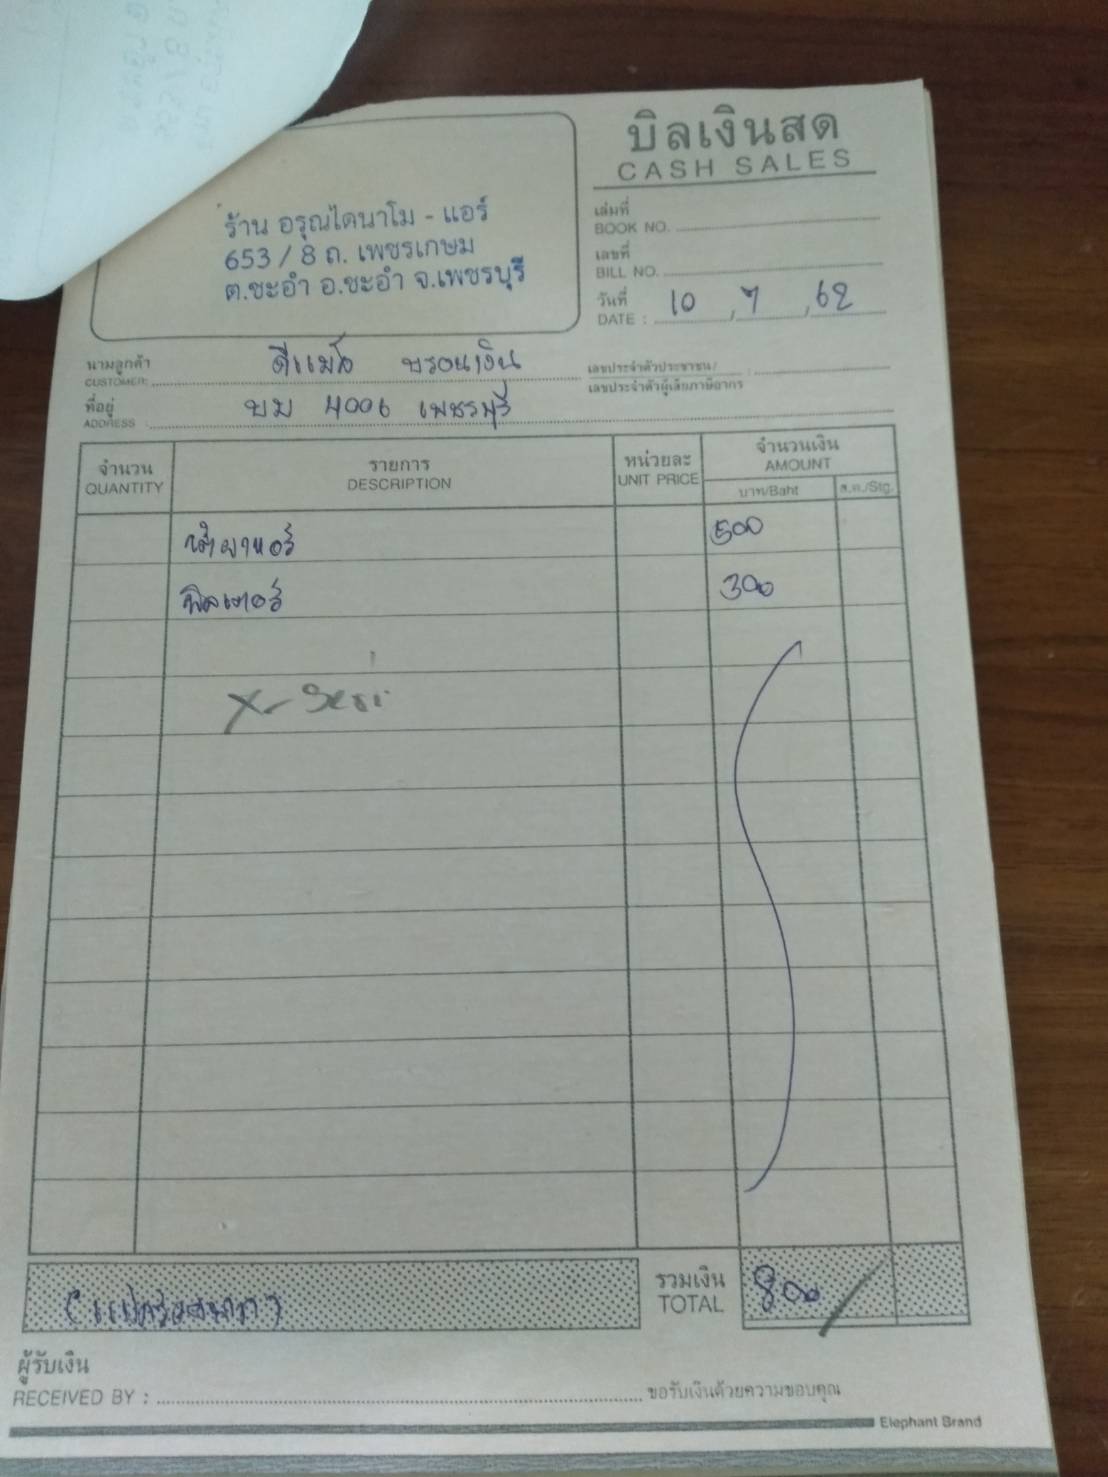 บิลเงินสด
CASH SALES
ร้าน อรุณไดนาโม - แอร์
653 / 8 ถ. เพชรเกษม
ต.ชะอำ อ.ชะอำ จ.เพชรบุรี
เล่มที่
BOOK NO.
เลขที่
BILL NO.
วันที่
DATE : 10 , 7 , 62
นามลูกค้า
CUSTOMER:
เลขประจำตัวประชาชน/ :
เลขประจำตัวผู้เสียภาษีอากร
ที่อยู่ บม 4006 เพชรบุรี
ADDRESS :
จำนวน รายการ หน่วยละ จำนวนเงิน
QUANTITY DESCRIPTION UNIT PRICE AMOUNT
บาท/Baht ส.ต./Stg.
น้ำยาแอร์ 500
ฟิลเตอร์ 300
รวมเงิน
TOTAL 800
(แปดร้อยบาท)
ผู้รับเงิน
RECEIVED BY : ขอรับเงินด้วยความขอบคุณ
Elephant Brand